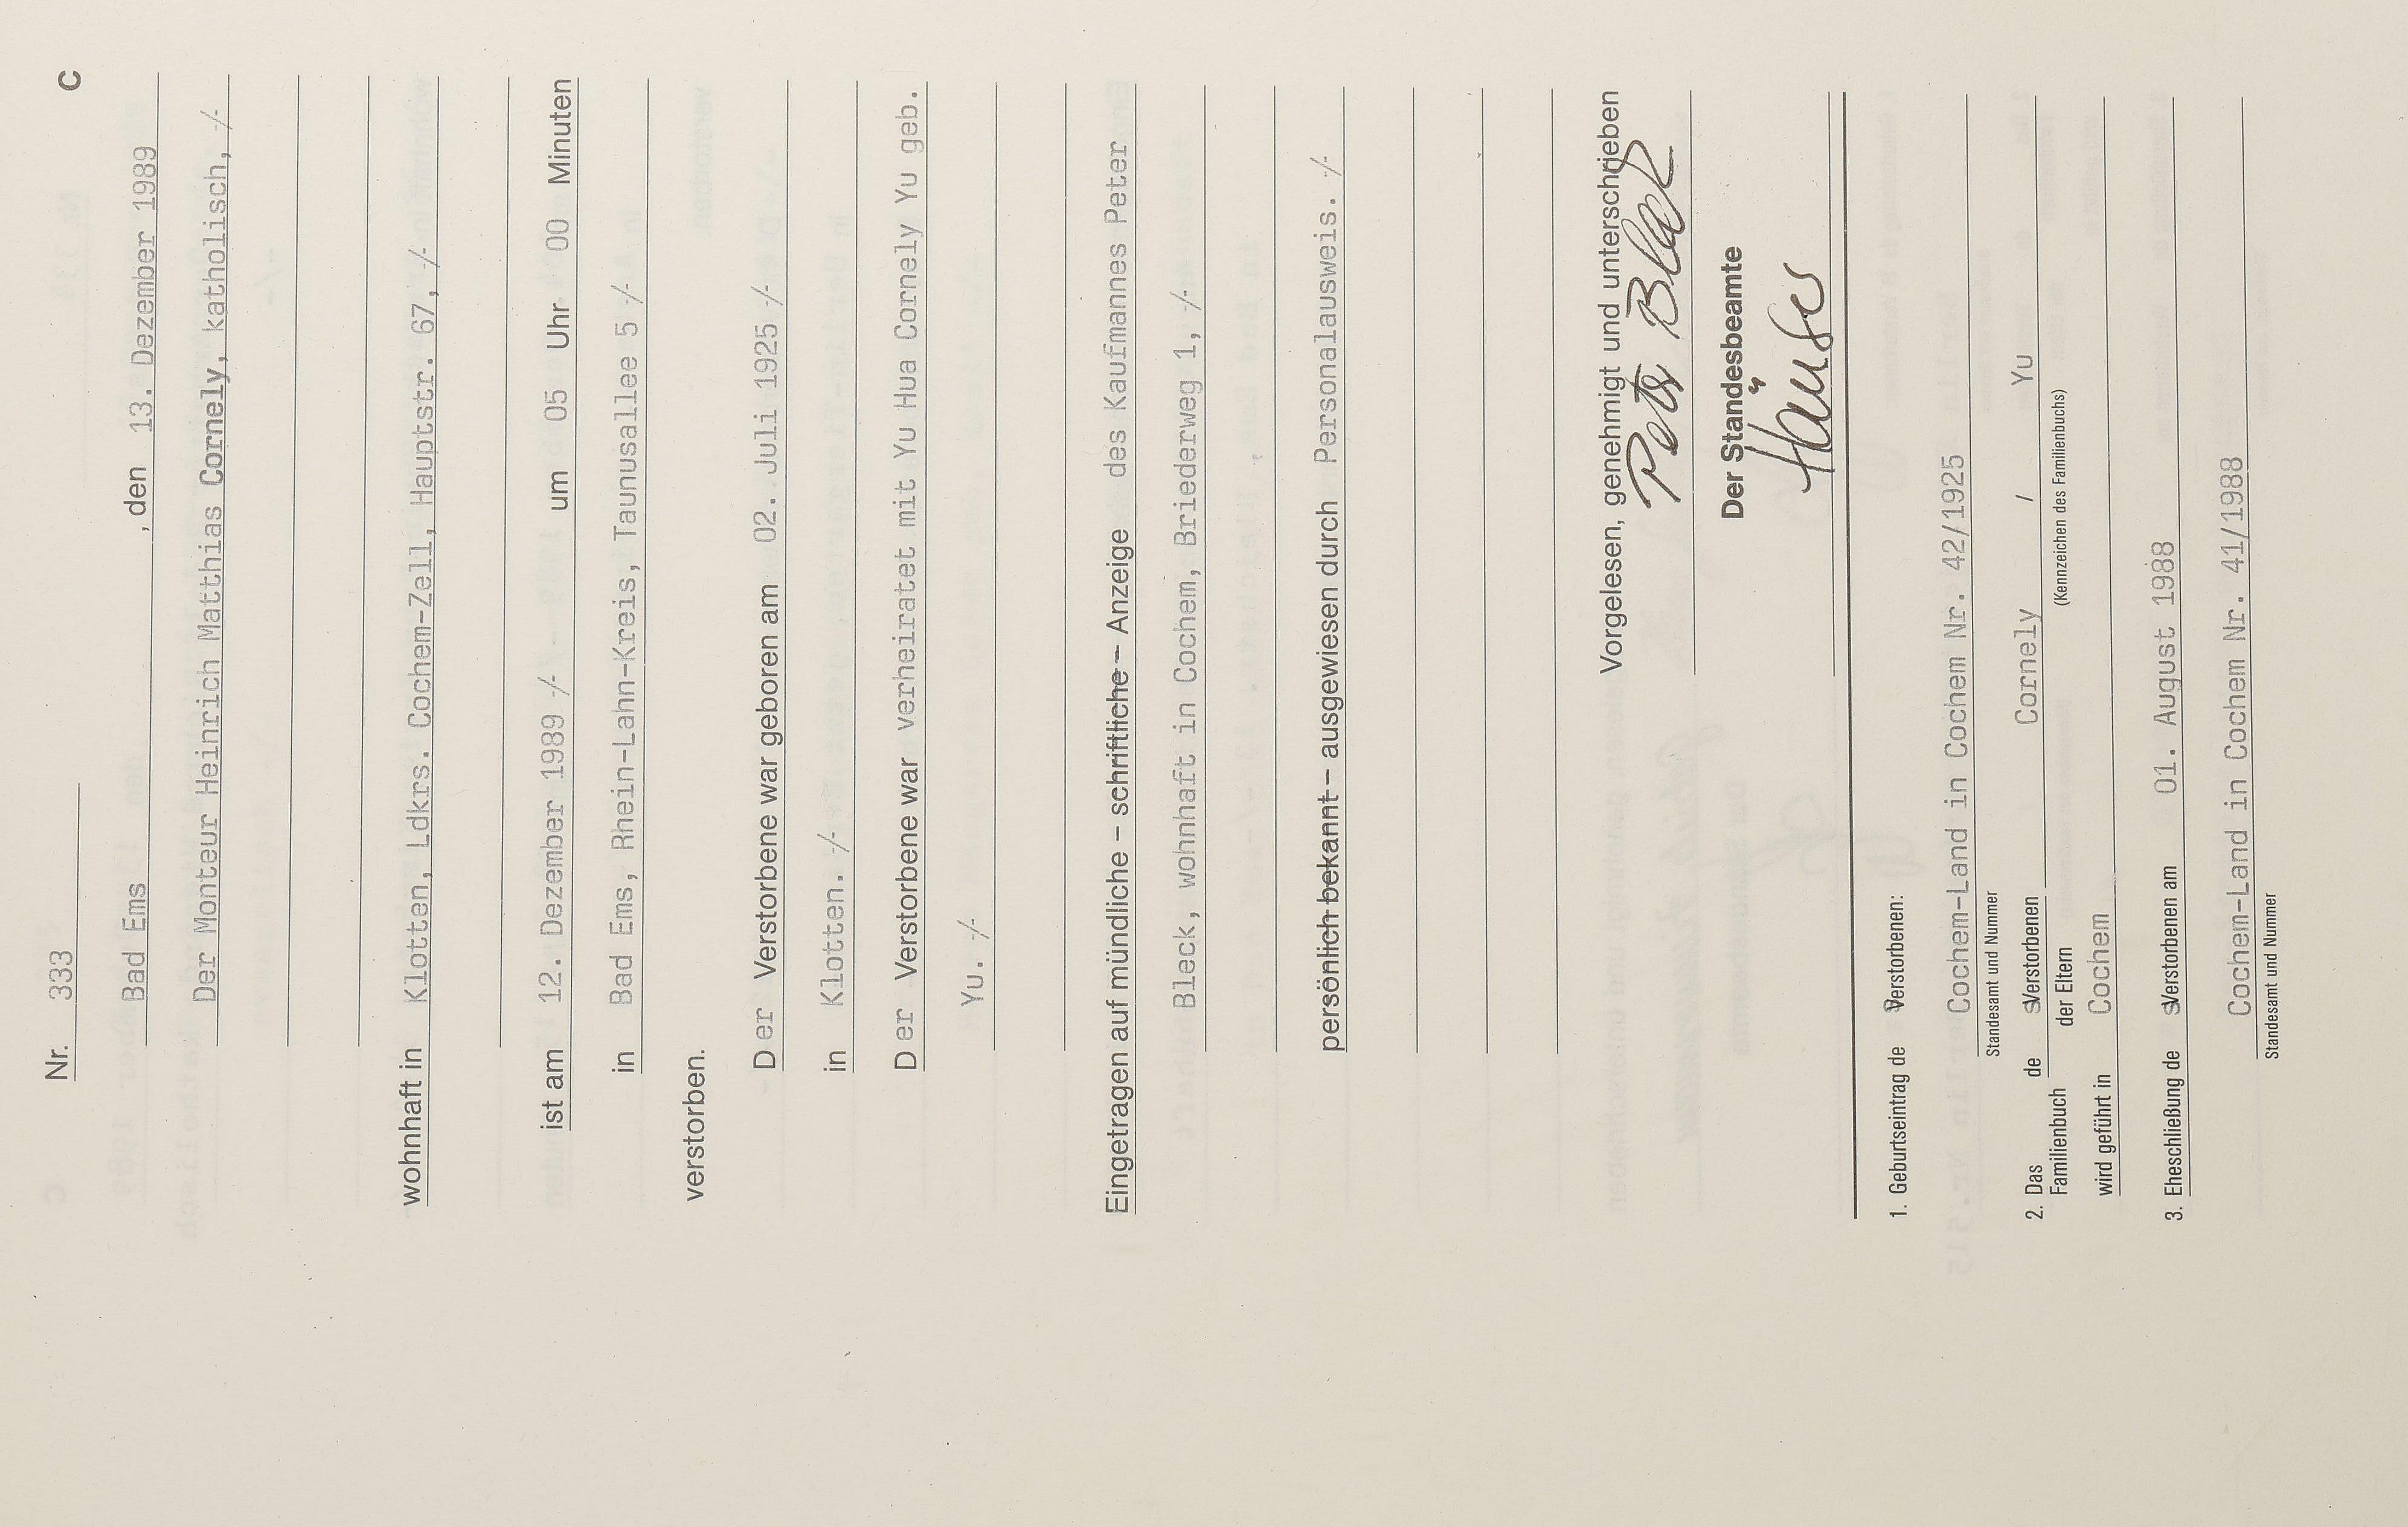 C
Nr. 333
Bad Ems , den 13. Dezember 1989
Der Monteur Heinrich Matthias Cornely, katholisch, -/-
wohnhaft in Klotten, Ldkrs. Cochem-Zell, Hauptstr. 67, -/-
ist am 12. Dezember 1989 -/- um 05 Uhr 00 Minuten
in Bad Ems, Rhein-Lahn-Kreis, Taunusallee 5 -/-
verstorben.
Der Verstorbene war geboren am 02. Juli 1925 -/-
in Klotten. -/-
Der Verstorbene war verheiratet mit Yu Hua Cornely Yu geb.
Yu. -/-
Eingetragen auf mündliche – schriftliche – Anzeige des Kaufmannes Peter
Bleck, wohnhaft in Cochem, Briederweg 1, -/-
persönlich bekannt – ausgewiesen durch Personalausweis. -/-
Vorgelesen, genehmigt und unterschrieben
Peter Bleck
Der Standesbeamte
Häuser
1. Geburtseintrag des Verstorbenen:
Cochem-Land in Cochem Nr. 42/1925
Standesamt und Nummer
2. Das Familienbuch des Verstorbenen der Eltern Cornely / Yu
(Kennzeichen des Familienbuchs)
wird geführt in Cochem
3. Eheschließung des Verstorbenen am 01. August 1988
Cochem-Land in Cochem Nr. 41/1988
Standesamt und Nummer